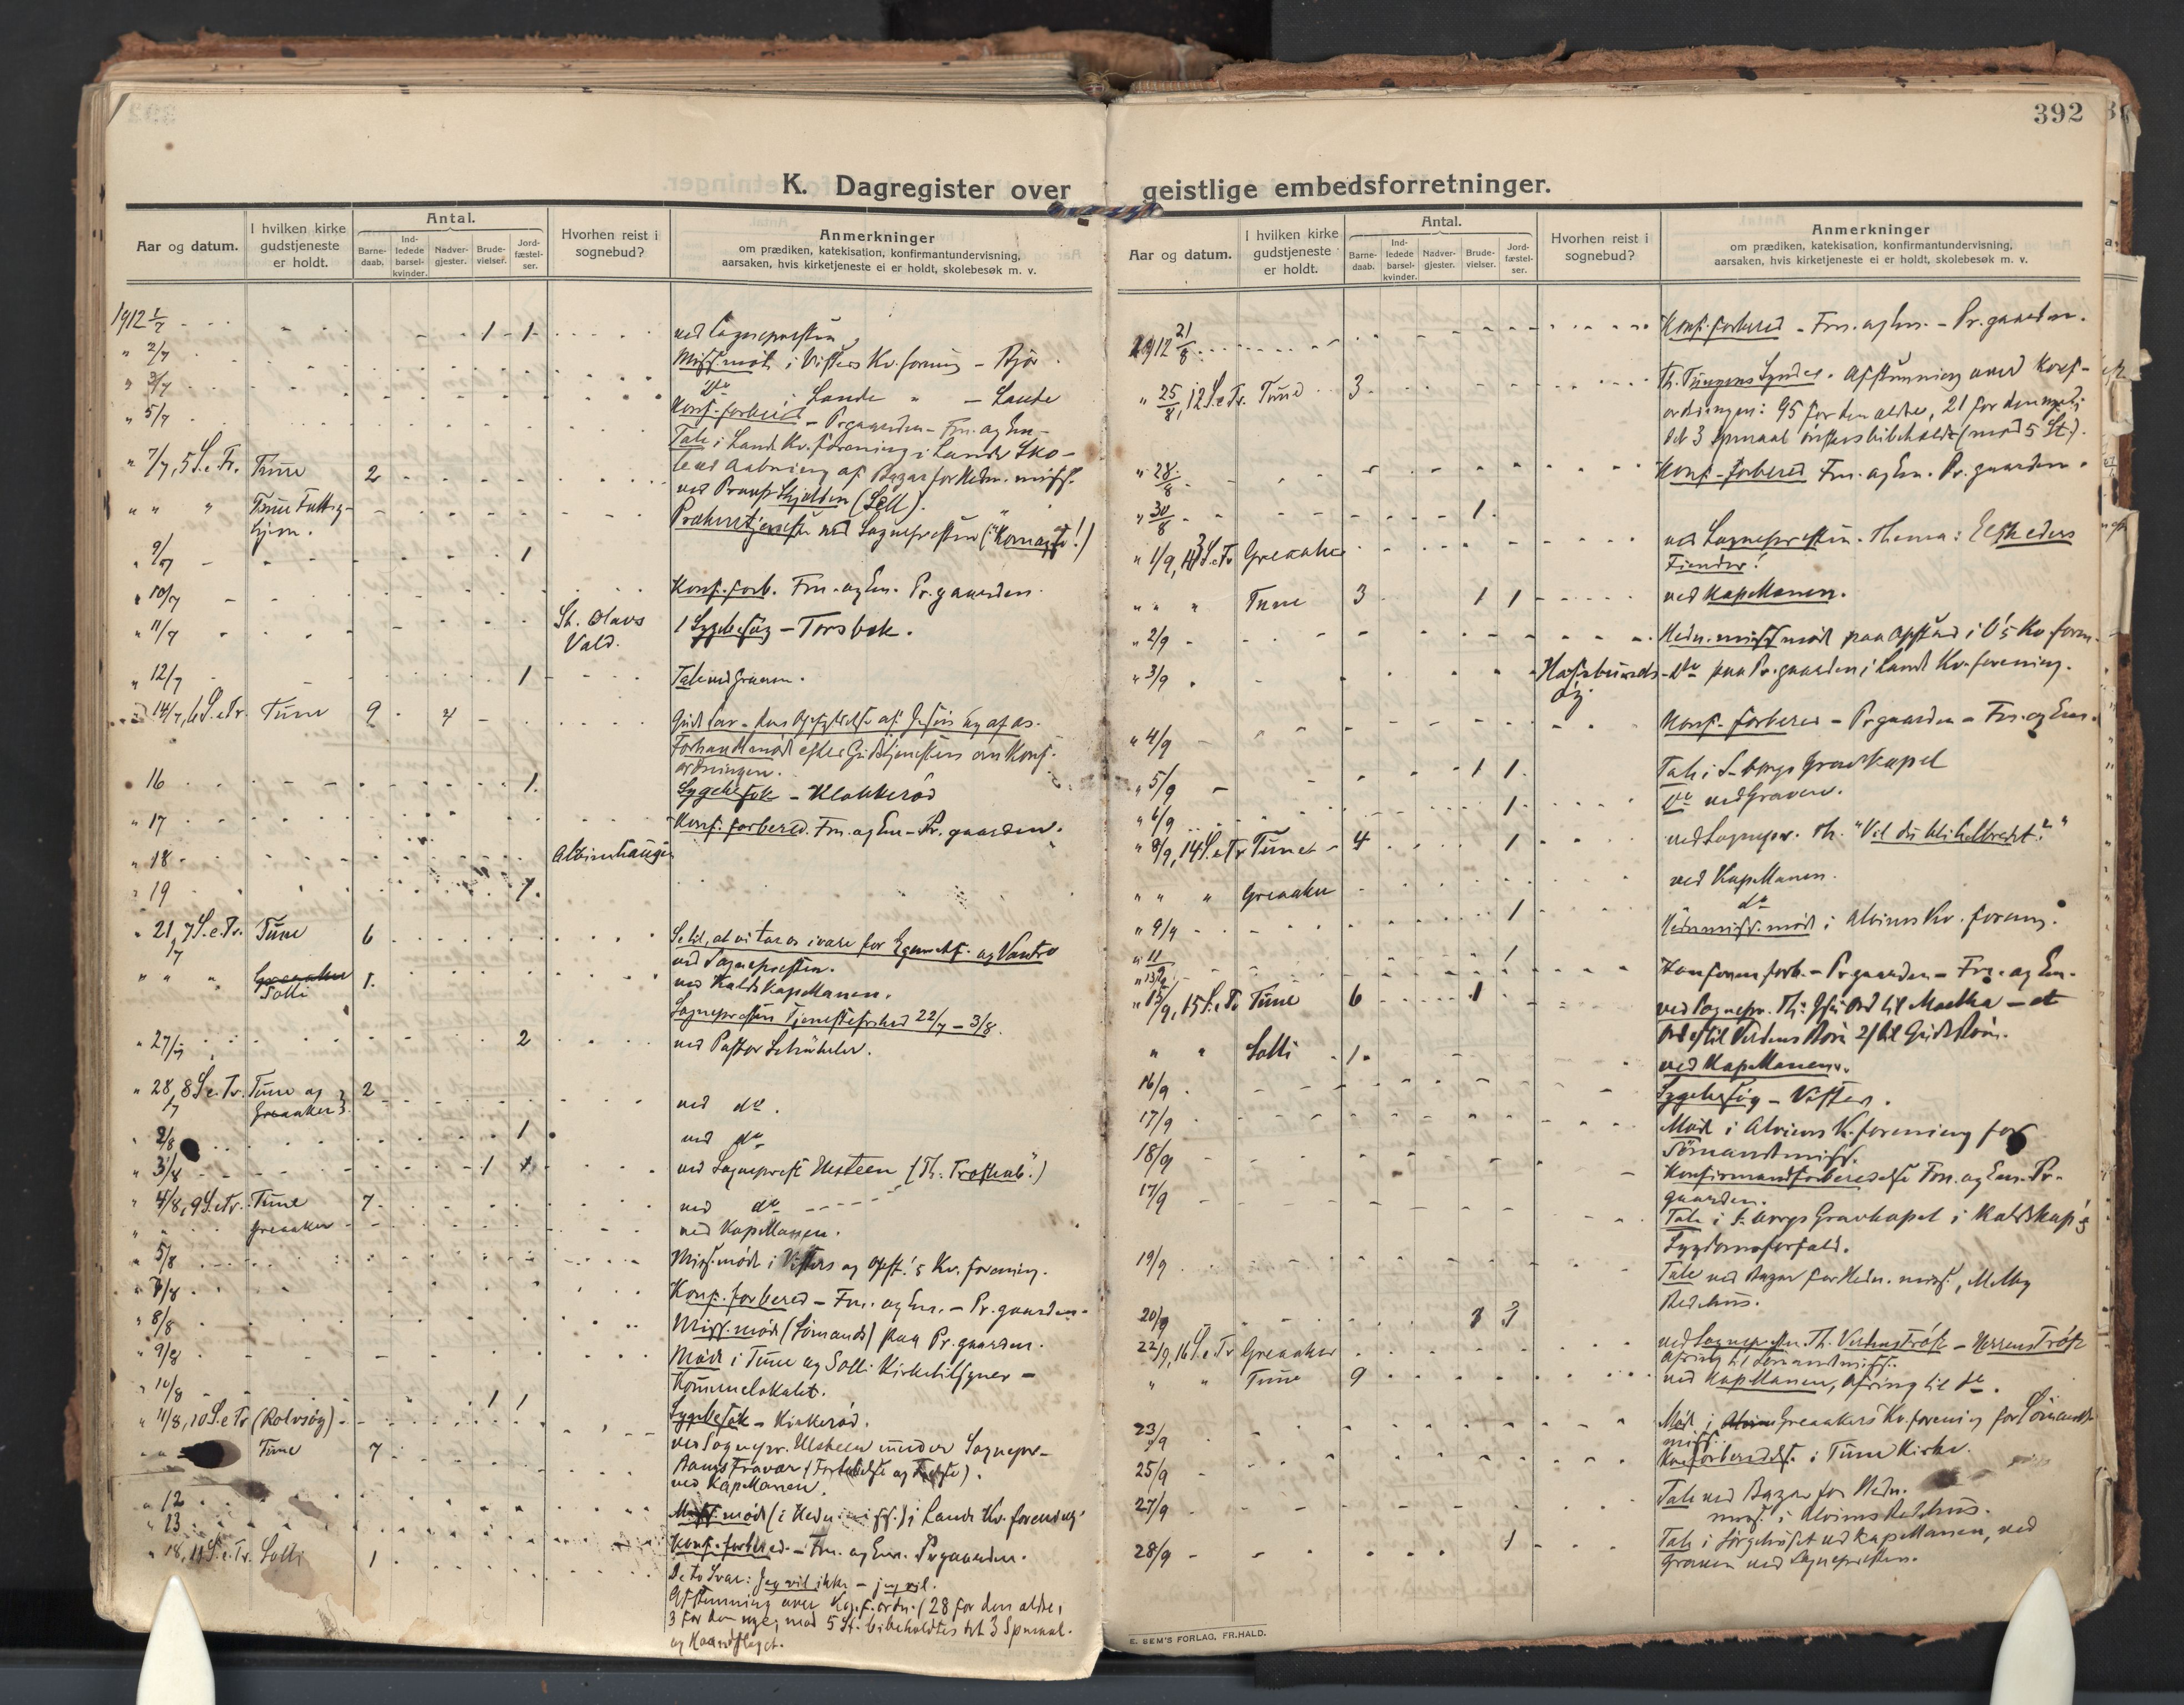 392
K. Dagregister over geistlige embedsforretninger.
Aar og datum.
I hvilken kirke gudstjeneste er holdt.
Antal.
Barne-daab.
Ind-ledede barsel-kvinder.
Nadver-gjester.
Brude-vielser.
Jord-fæstel-ser.
Hvorhen reist i sognebud?
Anmerkninger
om prædiken, katekisation, konfirmantundervisning,
aarsaken, hvis kirketjeneste ei er holdt, skolebesøk m. v.
1912 1/7 1 1 ved Sognepresten
" 2/7 Miss.møte i Visters Kv. forening
" 3/7 do i Lande " - Lande
" 5/7 Konf. forbered - Prgaarden - Fm. og Em -
Tale i Lande Kv. forening i Lande Sko-
le ved Aabning af Bazar for Hedn. miss.
" 7/7, 5 S. e. Tr. Tune 2 ved Provst Hjelden
" " " Tune Fattig-
hjem. ved Sognepresten
" 9/7 1
" 10/7 Konf. forb. Fm. og Em. Pr.gaarden
" 11/7 St. Olavs
Vold. 1 Sygebesøg - Torsbek.
" 12/7 1 Tale ved Graven.
" 14/7, 6 S. e Tr. Tune 9 4
Forhandl.møde efter Gudstjenesten om Konf.
ordningen.
" 16 1 Sygebesøk - Klokkerød
" 17 Konf. forbered. Fm. og Em - Pr. gaarden.
" 18 Alvimhaugen
" 19 1
" 21/7, 7 S. e. Tr. Tune 6 Se til, at vi tar os ivare for
og Vantro
ved Sognepresten.
" " " Greaaker
Solli 1 ved Kaldskapellanen.
Sognepresten Tjenestefrihed 22/7 - 3/8.
" 27/7 2 ved Pastor Schübeler.
" 28/7, 8 S. e. Tr. Tune og
Greaaker 2 ved do.
" 2/8 1 ved do
" 3/8 1 1 ved Sogneprest Ulsteen (Th. Troskab.)
" 4/8, 9 S. e Tr. Tune 7 ved do
" Greaaker ved Kapellanen.
" 5/8 Miss.møde i Visters og Opst.'s Kv. forening.
" 7/8 Konf. forbered - Fm. og Em. - Pr. gaarden.
" 8/8 Miss.møde (Sømands) paa Pr. gaarden.
" 9/8 Møde i Tune og Solli Kirketilsyner -
Kommunelokalet.
" 10/8 1 1 Sygebesøk - Kirkerød.
" 11/8, 10 S. e Tr (Rolvsøy) ved Sognepr. Ulsteen under Sognepr.
Bangs Fravær
" " Tune 7 ved Kapellanen.
" 12 Miss.møde (i Hedn. miss.) i Lande Kv. forening.
" 13 Konf. forbered. - Fm. og Em. Prgaarden.
" 18, 11 S. e. Tr. Solli 1 De to Svar: Jeg vil ikke - jeg vil.
Afstemning over Konf. ordn. (28 for den ældre,
3 for den nye, mod 5 St. bibeholdtes det 3 Spørsmaal
og Haandslaget.
K. Dagregister over geistlige embedsforretninger.
Aar og datum.
I hvilken kirke gudstjeneste er holdt.
Antal.
Barne-daab.
Ind-ledede barsel-kvinder.
Nadver-gjester.
Brude-vielser.
Jord-fæstel-ser.
Hvorhen reist i sognebud?
Anmerkninger
om prædiken, katekisation, konfirmantundervisning,
aarsaken, hvis kirketjeneste ei er holdt, skolebesøk m. v.
1912 21/8 Konf. forbered - Fm. og Em. - Pr. gaarden.
" 25/8, 12 S. e Tr. Tune 3 Th. Tungens Synder. Afstemning over Konf-
ordningen: 95 for den ældre, 21 for den nye;
det 3 Spørsmaal ønskes bibeholdt (mod 5 St.).
" 28/8 Konf-forbered Fm. og Em. Pr. gaarden.
" 30/8 1
" 1/9, 13 S. e Tr Greaaker ved Sognepresten. Thema:
Fiender!
" " " Tune 3 1 1 ved Kapellanen.
" 2/9 Hedn. missmøde paa Opstad i O's Kv. foren.
" 3/9 Hafslunds-
øy do paa Pr. gaarden i Lande Kv. forening.
" 4/9 Konf. forbered - Prgaarden - Fm. og Em.
" 5/9 1 1 Tale i S-borgs Gravkapel
" 6/9 1 do ved Graven.
" 8/9, 14 S. e Tr Tune 4 1 ved Sognepr. Th. "Vil du bli helbredet?"
" " " Greaaker ved Kapellanen.
" 9/9 1 Hednmiss.møde i Alvims Kv. forening.
" 11 1
" 13/9 Konfirm.forb. - Prgaarden - Fm. og Em.
" 15/9, 15 S. e Tr Tune 6 1 ved Sognepr. Th: Jesu Ord til Martha - et
Ord 1) til Verdens Børn 2) til Guds Børn.
" " Solli 1 ved Kapellanen.
16/9 Sygebesøg - Vister.
17/9 Møde i Alvims K. forening for
Sømandsmiss.
18/9 Konfirmandforberedelse Fm. og Em. Pr-
gaarden.
17/9 Tale i S-borgs Gravkapel i Kaldskap's
Sygdomsforfald.
19/9 Tale ved Bazar for Hedn. miss., Melby
Bedehus.
20/9 3 3
22/9, 16 S. e Tr Greaaker ved Sognepresten. Th. Verdens Trøst - Herrens Trøst
Ofring til Sømandsmiss.
" " Tune 9 ved Kapellanen, Ofring til do.
23/9 Møde i Greaakers Kv. forening for Sømands-
miss.
25/9 Konforberedels. i Tune Kirke.
27/9 Tale ved Bazar for Hedn.
miss. i Alvims Bedehus.
28/9 1 Tale i Sørgehuset ved Kapellanen, ved
Graven ved Sognepresten.
E. SEM'S FORLAG, FR.HALD.